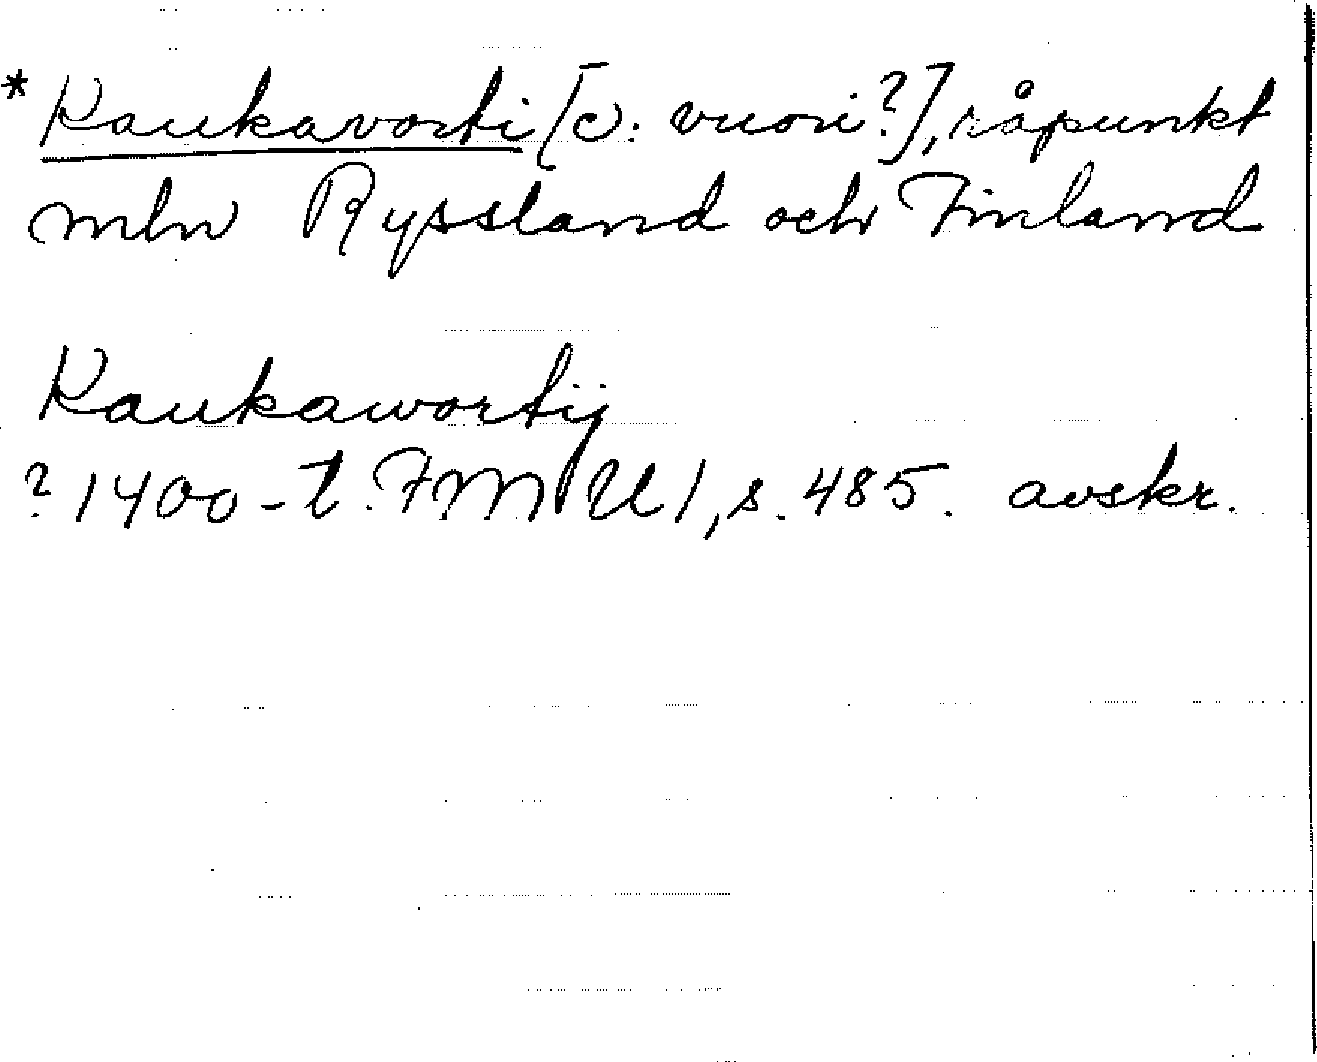 *Kaukavorti [ɔ: vuori?], råpunkt
mln Ryssland och Finland
Kaukawortij
? 1400-t. FMU 1, s. 485. avskr.